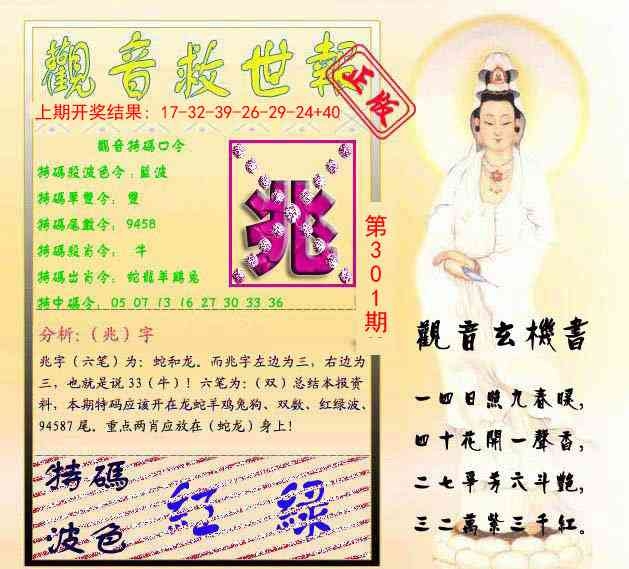 觀音救世報
正版
上期开奖结果：17-32-39-26-29-24+40
觀音特碼口令
特碼殺波色令：藍波
特碼單雙令： 雙
特碼尾數令：9458
特碼殺肖令： 牛
特碼出肖令：蛇龍羊鷄兔
特中碼令：05 07 13 16 27 30 33 36
兆
第301期
分析:（兆）字
兆字（六笔）为：蛇和龙。而兆字左边为三，右边为
三，也就是说 33（牛）！六笔为：（双）总结本报资
料，本期特码应该开在龙蛇羊鸡兔狗、双数、红绿波、
94587 尾。重点两肖应放在（蛇龙）身上！
特碼
波色
紅 綠
觀音玄機書
一四日照九春暖，
四十花開一聲香，
二七爭芳六斗艷，
三二萬紫三千紅。